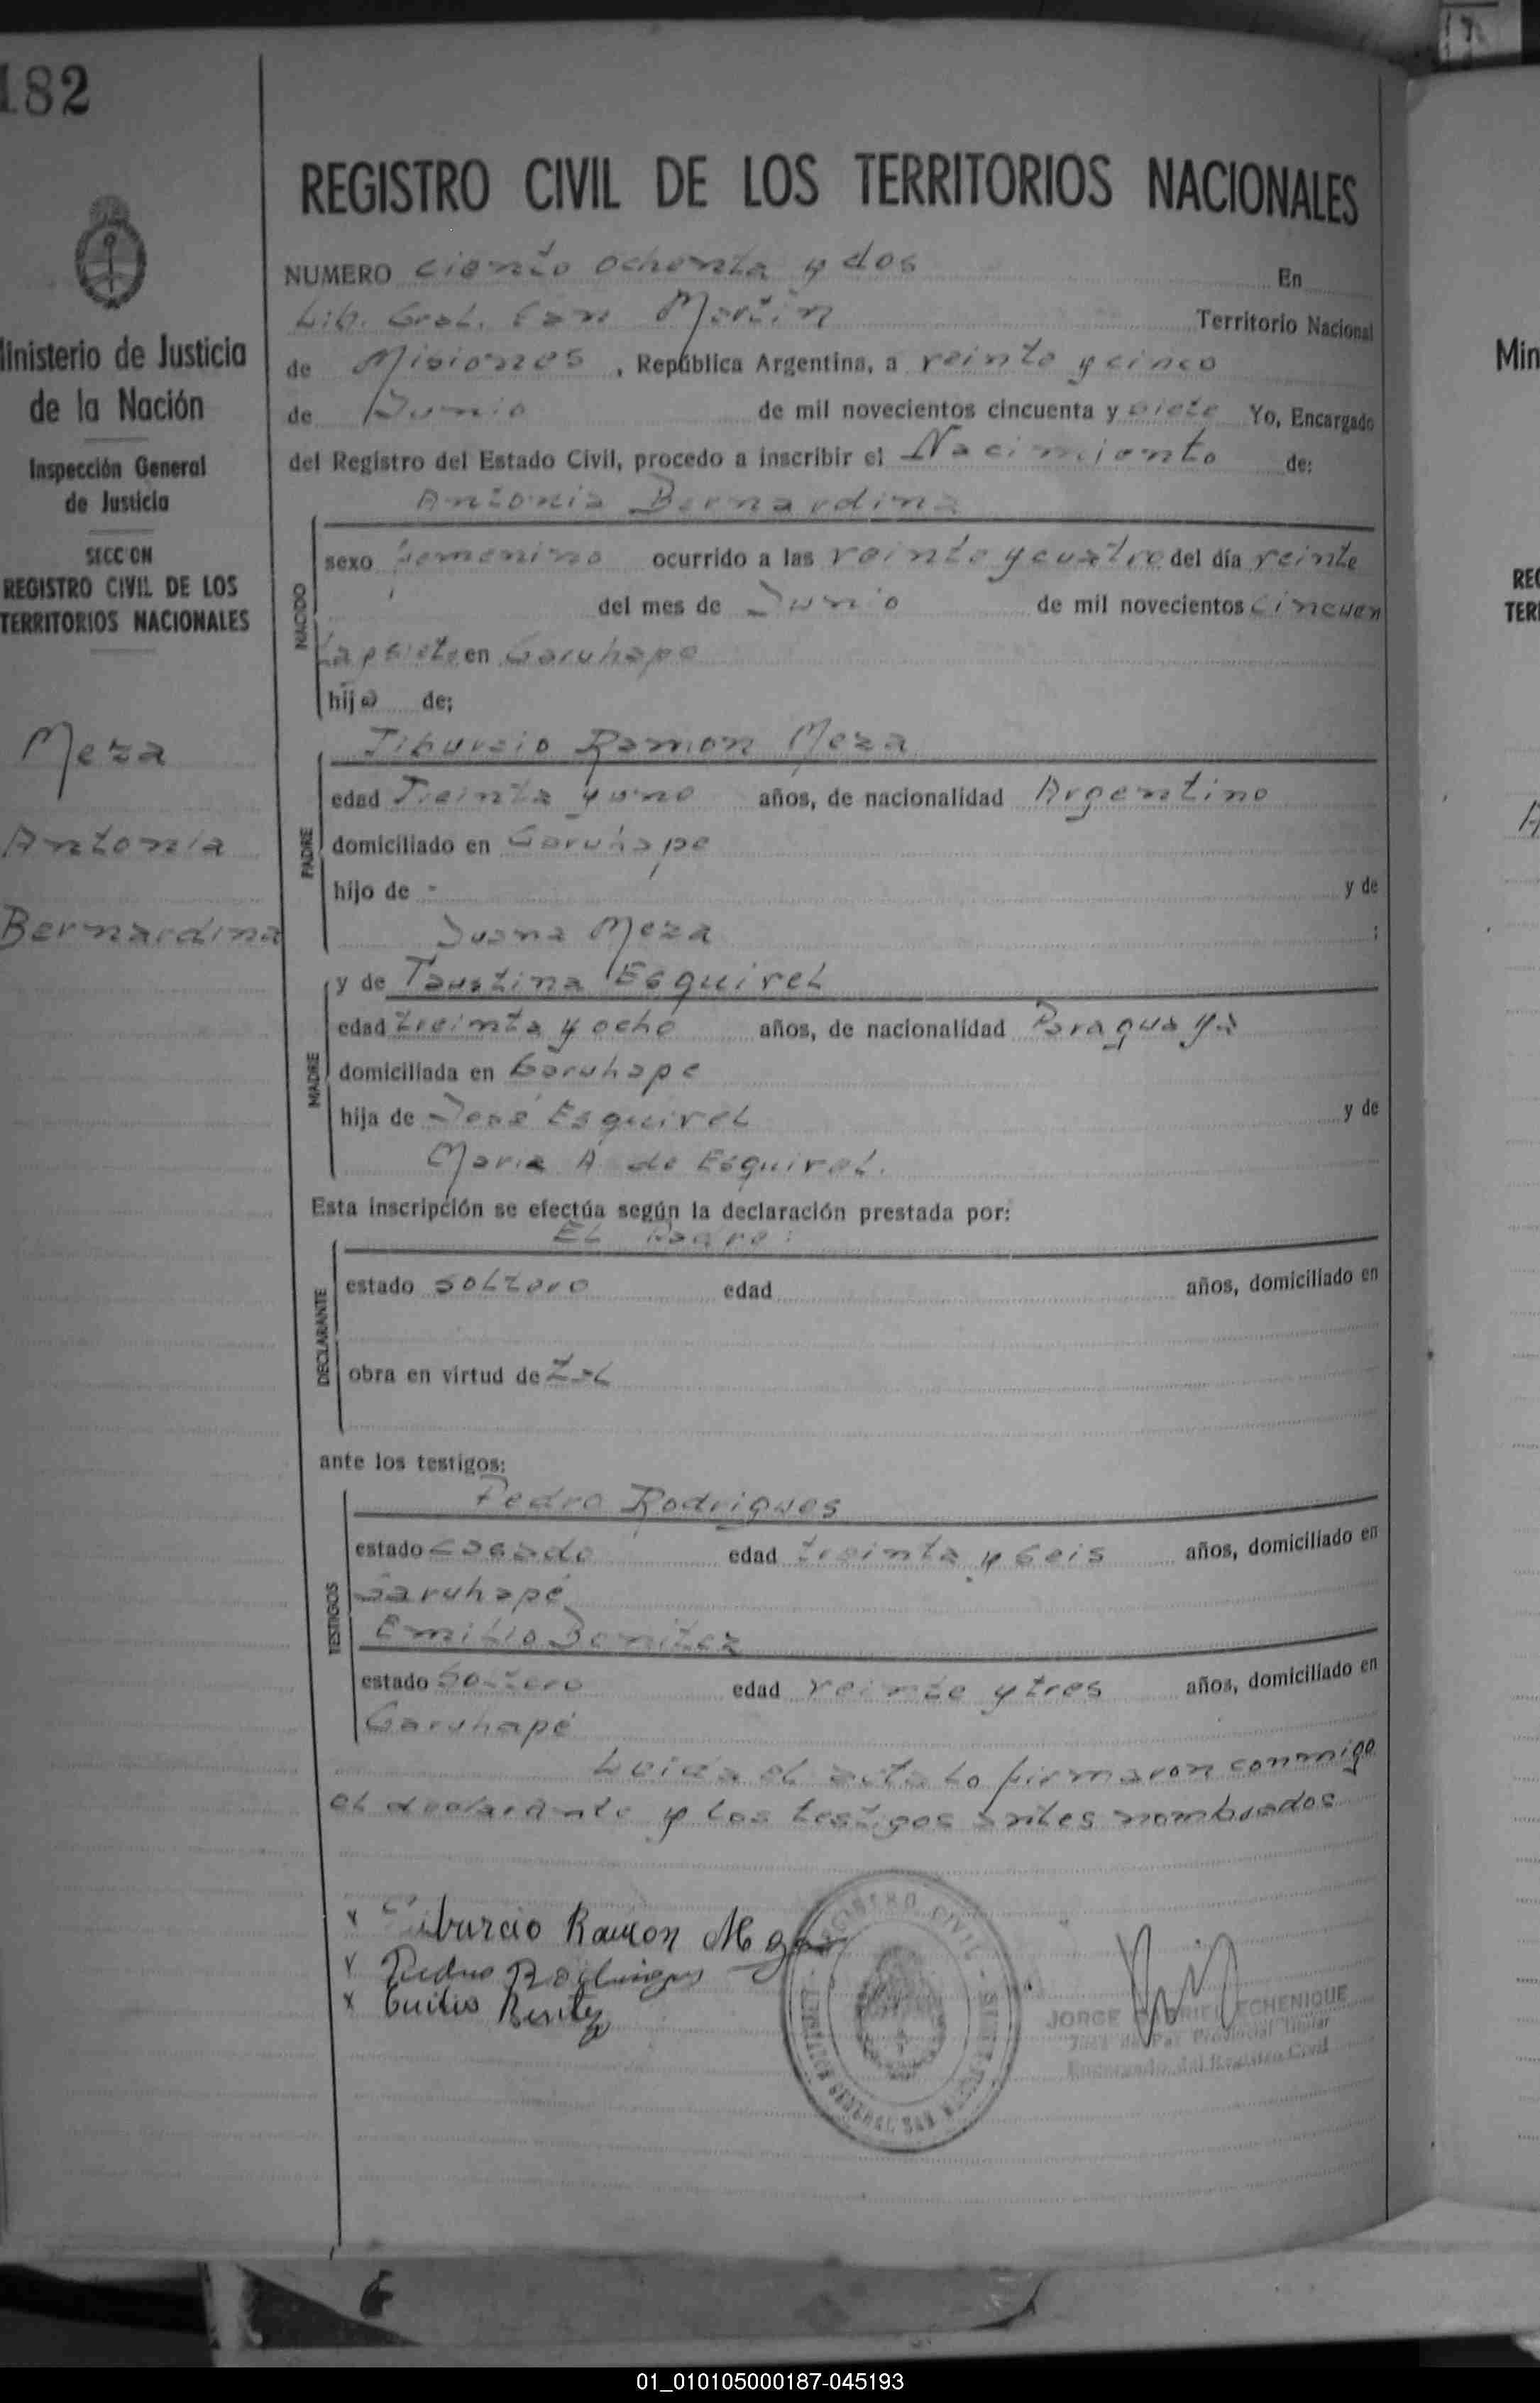 182
Ministerio de Justicia
de la Nación
Inspección General
de Justicia
SECCION
REGISTRO CIVIL DE LOS
TERRITORIOS NACIONALES
Meza
Antonia
Bernardina
REGISTRO CIVIL DE LOS TERRITORIOS NACIONALES
NUMERO ciento ochenta y dos En
Lib. Gral. San Martin Territorio Nacional
de Misiones, República Argentina, a veinte y cinco
de Junio de mil novecientos cincuenta y siete Yo, Encargado
del Registro del Estado Civil, procedo a inscribir el Nacimiento de:
Antonia Bernardina
NACIDO
sexo femenino ocurrido a las veinte y cuatro del día veinte
del mes de Junio de mil novecientos cincuen
ta y siete en Garuhape
hija de;
Tiburcio Ramon Meza
PADRE
edad Treinta y uno años, de nacionalidad Argentino
domiciliado en Garuhape
hijo de - y de
Juana Meza ;
MADRE
y de Faustina Esquivel
edad treinta y ocho años, de nacionalidad Paraguaya
domiciliada en Garuhape
hija de José Esquivel y de
Maria A. de Esquivel.
Esta inscripción se efectúa según la declaración prestada por:
El Padre:
DECLARANTE
estado soltero edad años, domiciliado en
obra en virtud de
ante los testigos:
Pedro Rodrigues
TESTIGOS
estado casado edad treinta y seis años, domiciliado en
Garuhapé
Emilio Benitez
estado Soltero edad veinte y tres años, domiciliado en
Garuhapé
Leida el acta la firmaron conmigo
el declarante y los testigos antes nombrados
x Tiburcio Ramon Meza
x Pedro Rodrigues
x Emilio Benitez
REGISTRO CIVIL
LIBERTADOR GENERAL SAN MARTIN
JORGE GABRIEL ECHENIQUE
Juez de Paz Provincial Titular
Encargado del Registro Civil
Min
REG
TERR
01_010105000187-045193